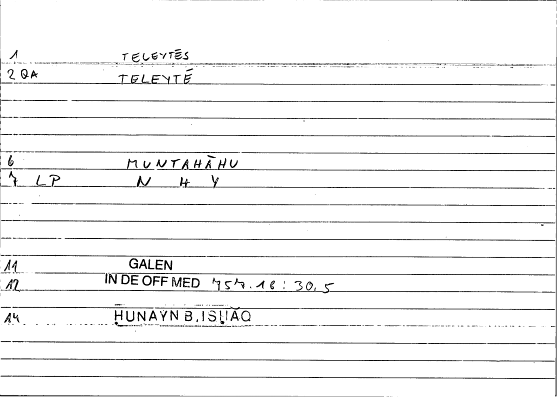 1 TELEYTĒS
2 QA TELEYTĒ
6 MUNTAHĀHU
7 LP N H Y
11 GALEN
12 IN DE OFF MED 757.18 : 30.5
14 ḤUNAYN B. ISḤĀQ